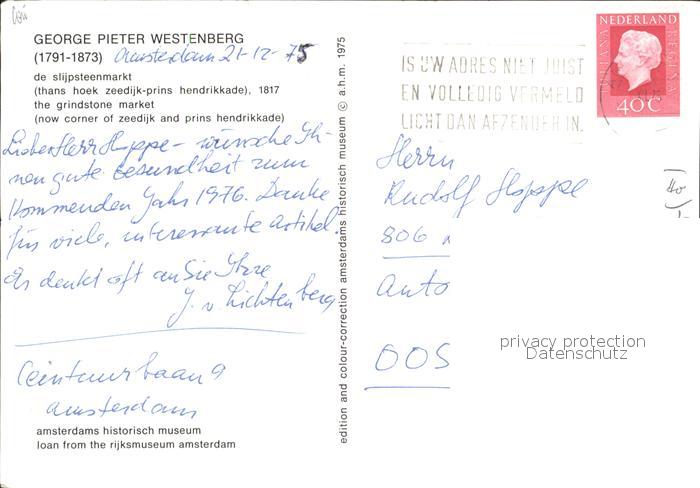 GEORGE PIETER WESTENBERG
(1791-1873) Amsterdam 21-12-75
de slijpsteenmarkt
(thans hoek zeedijk-prins hendrikkade), 1817
the grindstone market
(now corner of zeedijk and prins hendrikkade)
Lieber Herr Hoppe - wünsche Ih-
nen gute Gesundheit zum
kommenden Jahr 1976. Danke
für viele, interessante Artikel.
Es denkt oft an Sie Ihre
J. v. Lichtenberg
Ceintuurbaan 9
Amsterdam
amsterdams historisch museum
loan from the rijksmuseum amsterdam
edition and colour-correction amsterdams historisch museum © a.h.m. 1975
IS UW ADRES NIET JUIST
EN VOLLEDIG VERMELD
LICHT DAN AFZENDER IN.
NEDERLAND
JULIANA
REGINA
40 C
Herrn
Rudolf Hoppe
806
Auto
OOS
privacy protection
Datenschutz